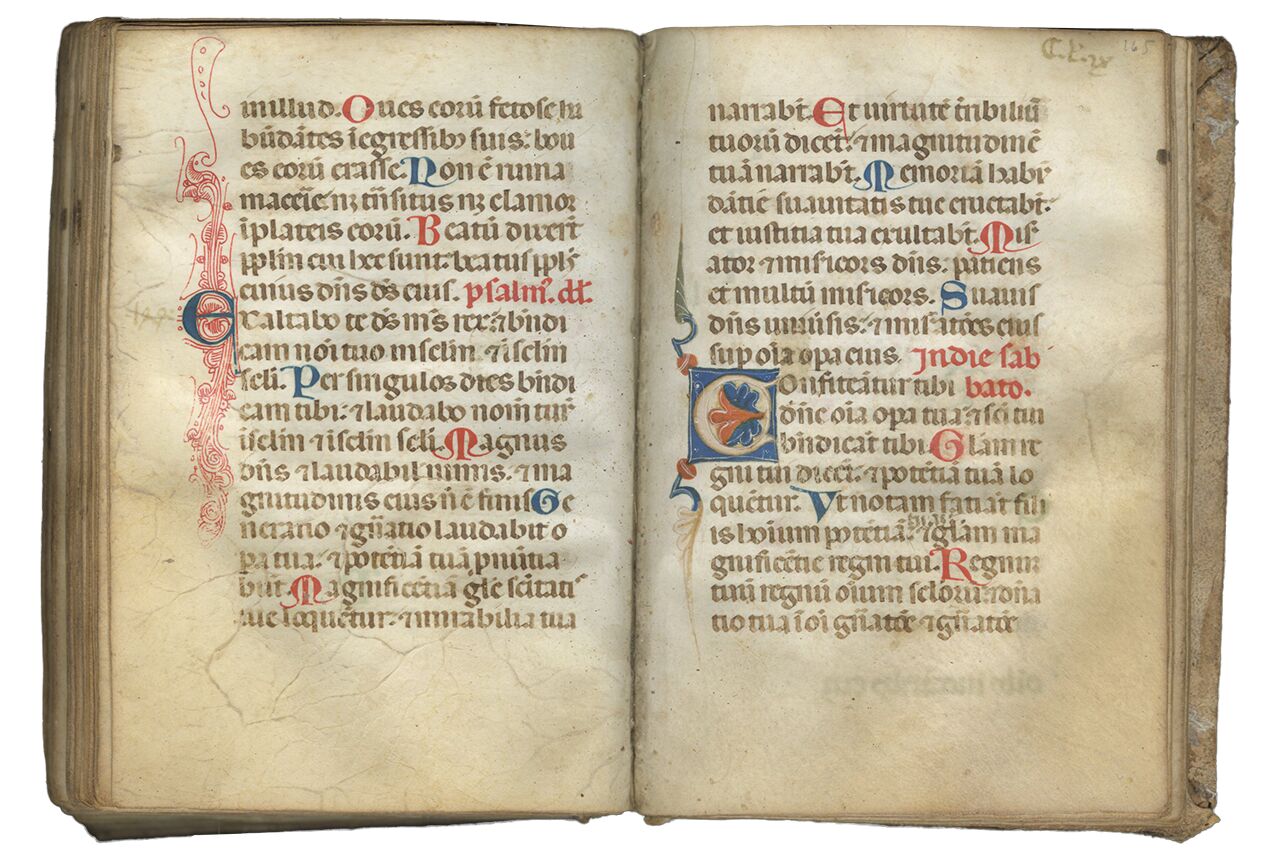 in illud. Oues eorū fetose hū
būdātes ī egressibꝫ suis: bou
es eorū crasse. Non ē ruina
macerie nꝫ trāsitus nꝫ clamor
ī plateis eorū. Beatū dixerūt
pplm cui hec sunt: beatus ppls
cuius dn̄s ds̄ eius. psalm. dd.
Exaltabo te ds̄ ms̄ rex: ⁊ bn̄di
cam noī tuo in sclm ⁊ ī sclm
scli. Per singulos dies bn̄di
cam tibi: ⁊ laudabo nom̄ tuū
ī sclm ⁊ ī sclm scli. Magnus
dn̄s ⁊ laudabil' nimis: ⁊ ma
gnitudinis eius n̄ ē finis Ge
neratio ⁊ gn̄atio laudabit o
pa tua: ⁊ potētiā tuā pnūtia
būt. Magnificētiā gl̄e scitati'
tue loquētur: ⁊ mirabilia tua
narrabt̄. Et uirtutē tribiliū
tuorū dicēt: ⁊ magnitudinē
tuā narrabt̄. Memoriā habū
dātie suauitatis tue eructabt̄:
et iustitia tua exultabt̄. Mis̄
ator ⁊ misicors dn̄s: patiens
et multū misicors. Suauis
dn̄s uniuisis: ⁊ misatōes eius
sup oīa opa eius. In die sab
Confiteātur tibi bato.
dn̄e oīa opa tua: ⁊ scī tui
bn̄dicāt tibi Glām re
gni tui dicēt: ⁊ potētiā tuā lo
quētur: Vt notam faciāt fili
is hoīum potētiā: tuā ⁊ glām ma
gnificētie regni tui. Regnū
tuū regnū oīum sclorū: ⁊ dn̄a
tio tua ī oī gn̄atōe ⁊ gn̄atōe
165